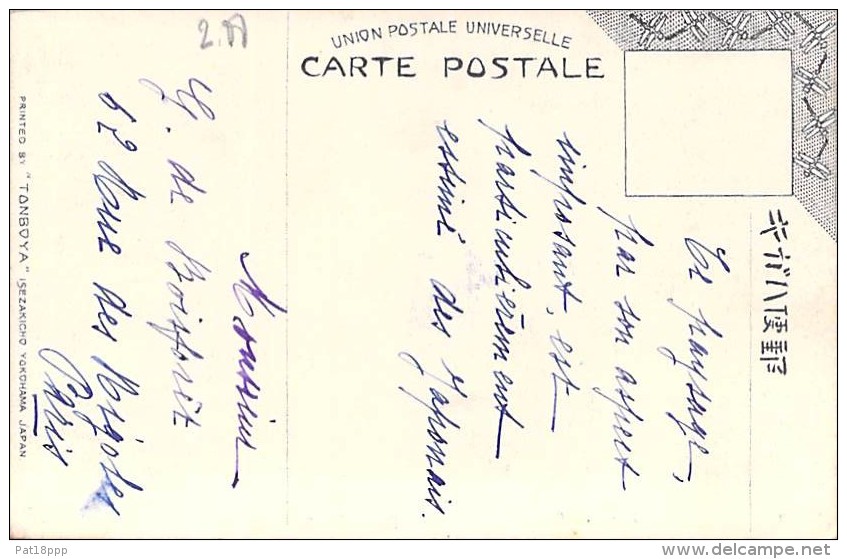 2.50
UNION POSTALE UNIVERSELLE
CARTE POSTALE
郵便はがき
Ce paysage,
par son aspect
imposant, est
particulièrement
estimé des Japonais.
Monsieur
G. de Boisforêt
62 Rue des Vignoles
Paris
PRINTED BY "TONBOYA" ISEZAKICHO YOKOHAMA JAPAN
Pat18ppp
www.delcampe.net